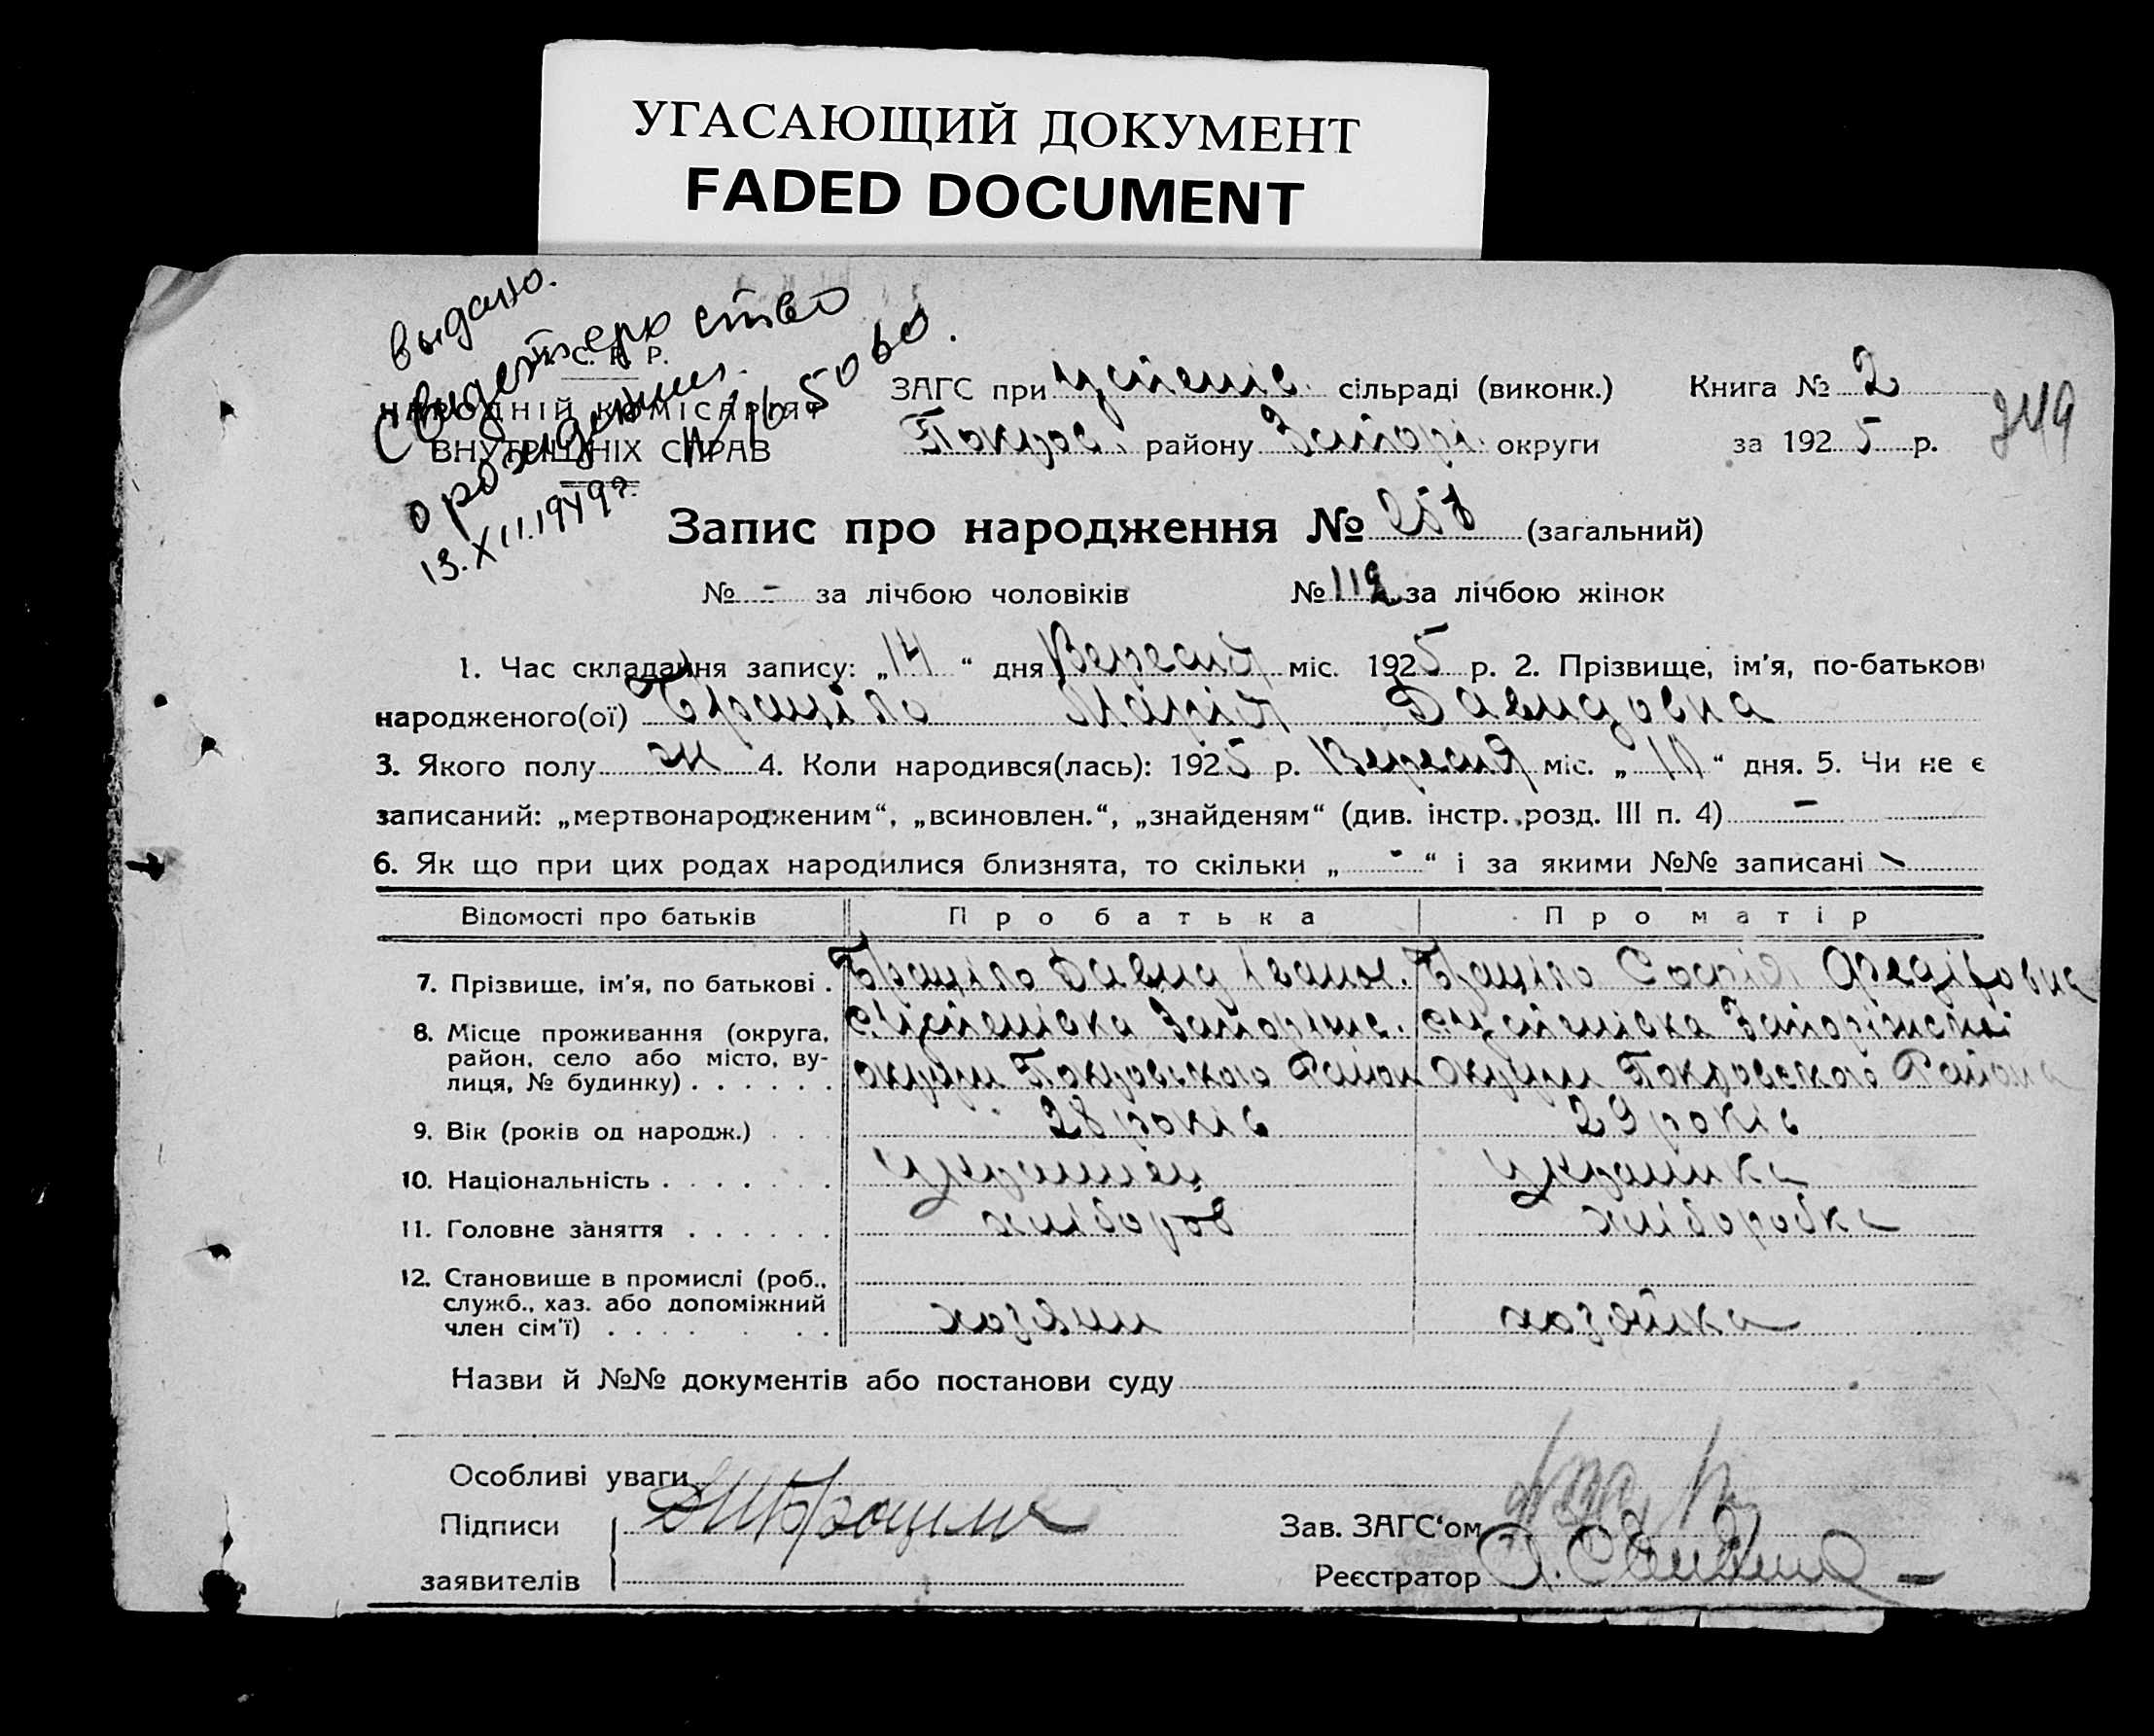 УГАСАЮЩИЙ ДОКУМЕНТ
FADED DOCUMENT
выдано.
свидетельство
о рождении
13.XII.1949г.
У. С. Р. Р.
НАРОДНІЙ КОМІСАРІЯТ
ВНУТРІШНІХ СПРАВ
ЗАГС при Успенів. сільраді (виконк.) Книга № 2
Покров. району Запорі. округи за 1925 р.
349
Запис про народження № (загальний)
№ - за лічбою чоловіків № 112 за лічбою жінок
1. Час складання запису: „14“ дня Вересня міс. 1925 р. 2. Прізвище, ім'я, по-батькові
народженого(ої) Браціло Марія Давидовна
3. Якого полу ж 4. Коли народився(лась): 1925 р. Вересня міс. „10“ дня. 5. Чи не є
записаний: „мертвонародженим“, „всиновлен.“, „знайденям“ (див. інстр. розд. III п. 4) -
6. Як що при цих родах народилися близнята, то скільки „-“ і за якими №№ записані -
Відомості про батьків Про батька Про матір
7. Прізвище, ім'я, по батькові . Браціло Давид Іванов. Браціло Софія Федіровна
8. Місце проживання (округа, с. Успенівка Запоріжс. с. Успенівка Запоріжскої
район, село або місто, ву-
лиця, № будинку) . . . . . . округи Покровского Район округи Покровского Района
9. Вік (років од народж.) . . . 28 років 29 років
10. Національність . . . . . . . українец українка
11. Головне заняття . . . . . . хлібороб хліборобка
12. Становище в промислі (роб.,
служб., хаз. або допоміжний
член сім'ї) . . . . . . . хозяин хозяйка
Назви й №№ документів або постанови суду
Особливі уваги
Підписи
заявителів
Зав. ЗАГС‘ом
Реєстратор